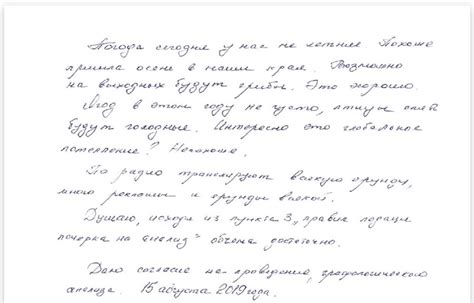 Погода сегодня у нас не летняя. Похоже
пришла осень в наши края. Возможно
на выходных будут грибы. Это хорошо.
Ягод в этом году не густо, птицы опять
будут голодные. Интересно это глобальное
потепление? Непохоже.
По радио транслируют всякую ерунду,
много рекламы и ерунды всякой.
Думаю, исходя из пункта 3 „правил подачи
почерка на анализ" объёма достаточно.
Даю согласие на проведение графологического
анализа. 15 августа 2019 года.